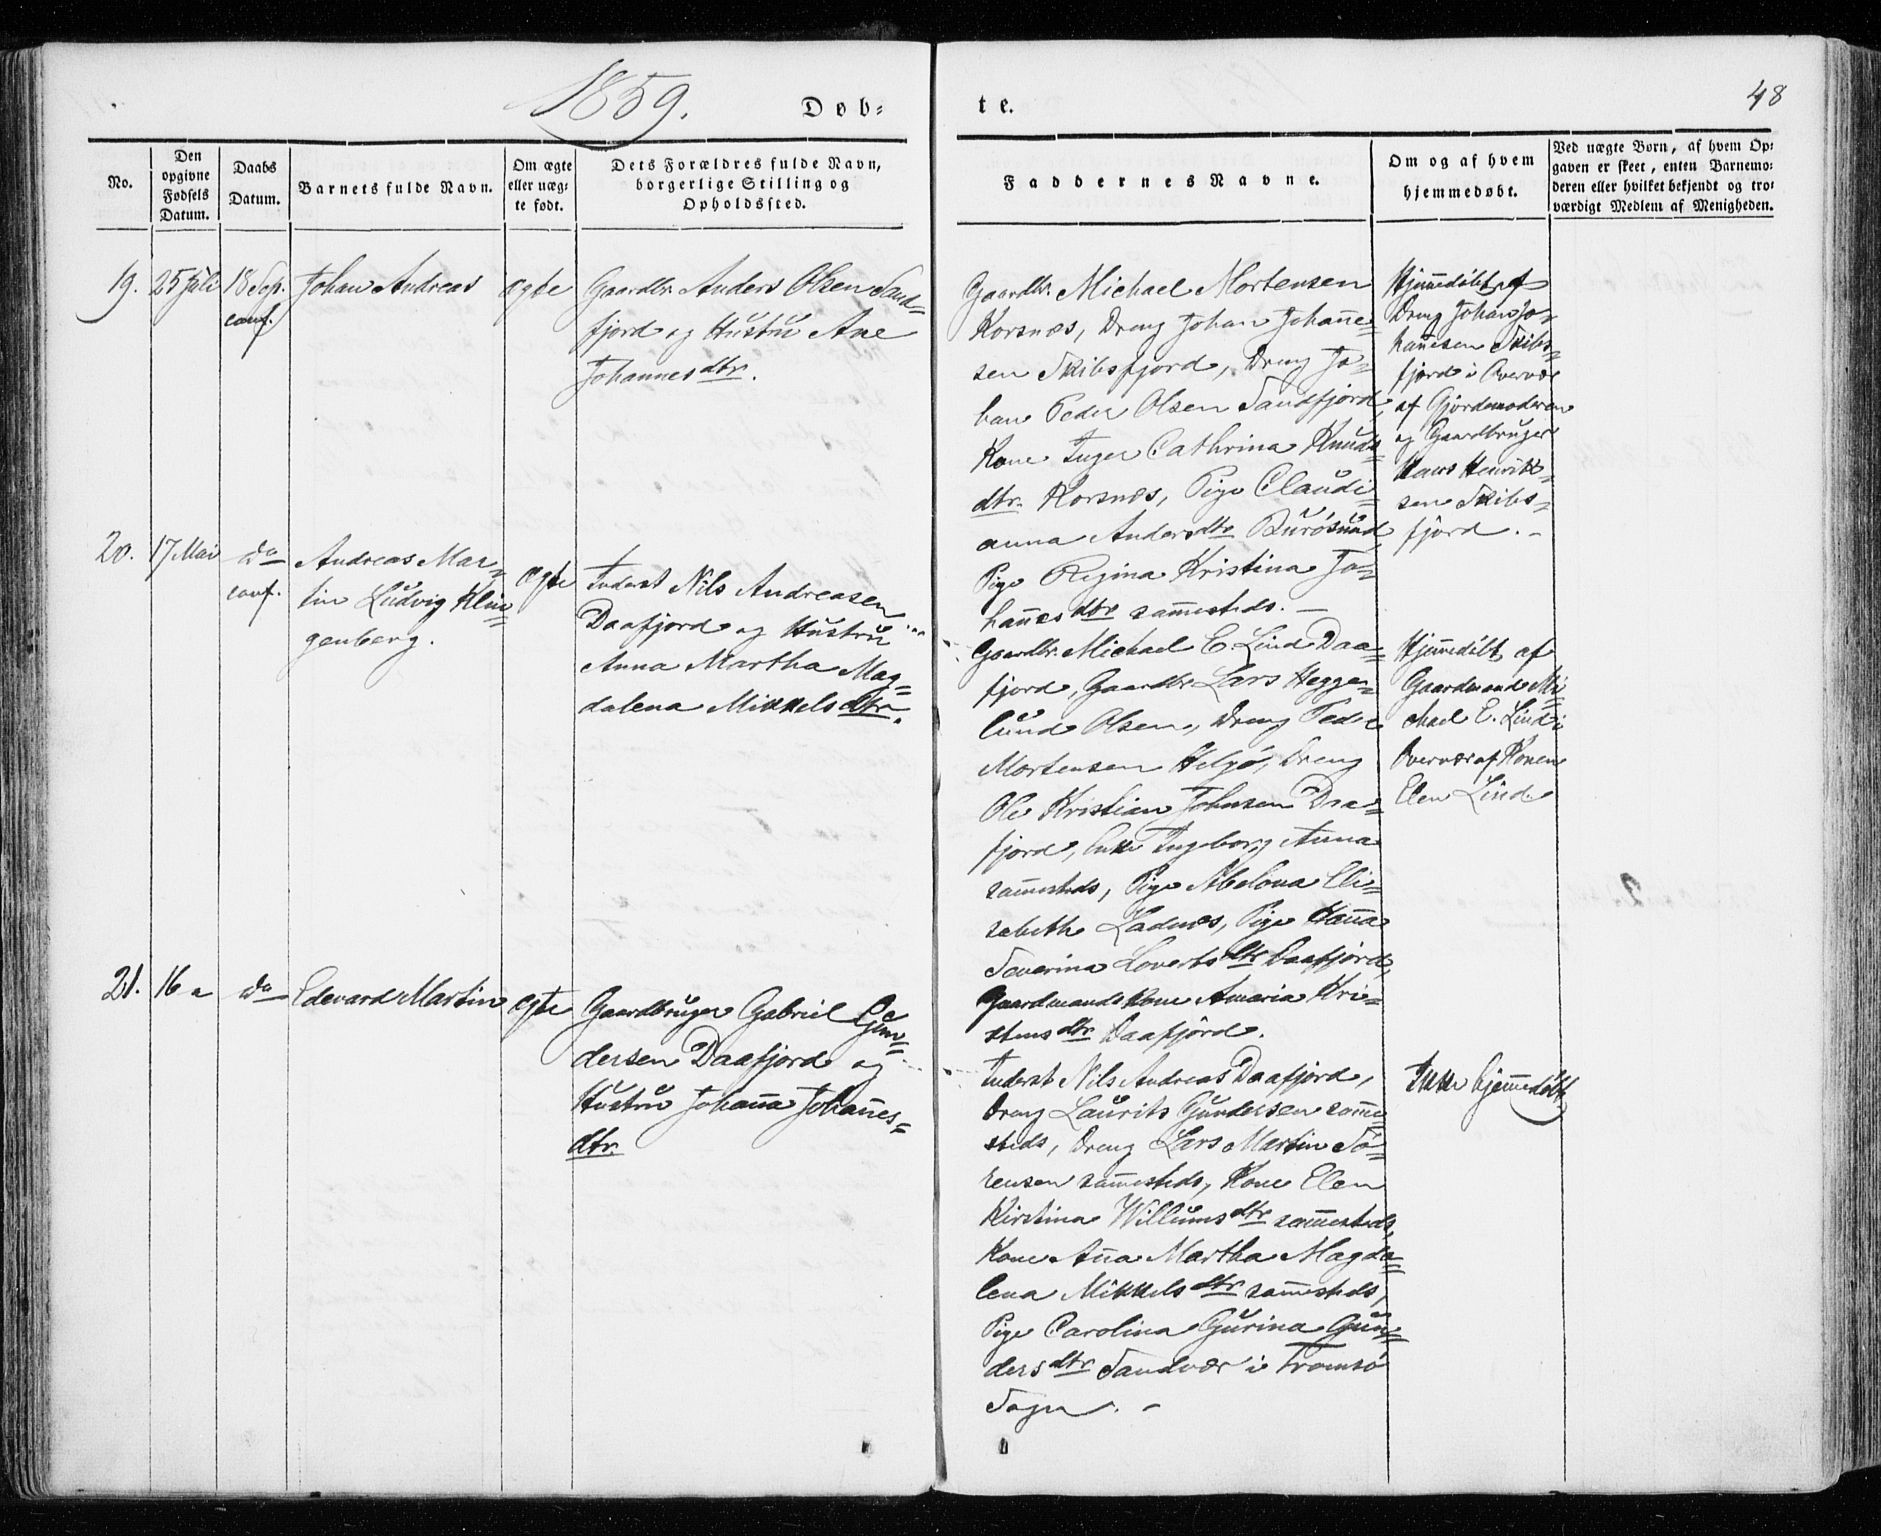 1859.
Døb-
te.
48
No.
Den
opgivne
Fødsels
Datum.
Daabs
Datum.
Barnets fulde Navn.
Om ægte
eller uæg-
te født.
Dets Forældres fulde Navn,
borgerlige Stilling og
Opholdssted.
Faddernes Navne.
Om og af hvem
hjemmedøbt.
Ved uægte Børn, af hvem Op-
gaven er skeet, enten Barnemo-
deren eller hvilket bekjendt og tro-
værdigt Medlem af Menigheden.
19.
25 Juli
18 Sep.
conf.
Johan Andreas
ægte
Gaardbr. Anders Olsen Sand=
fjord og Hustru Ane
Johannesdtr.
Gaardbr. Michael Mortensen
Korsnæs, Dreng Johan Johanne=
sen Skibsfjord, Dreng Jo=
han Peder Olsen Sandfjord,
Kone Inger Cathrina Knuds=
dtr. Korsnæs, Pige Claudi=
anna Andersdtr Burøsund,
Pige Regina Kristina Jo=
hannesdtr sammesteds. —
Hjemmedøbt af
Dreng Johan Jo=
hannesen Skibs=
fjord i Overvær
af Gjordemoderen
og Gaardbruger
Hans Henrik=
sen Skibs=
fjord. -
20.
17 Mai
do
conf.
Andreas Mar=
tin Ludvig Klin=
genberg.
ægte
Inderst Nils Andreasen
Daafjord og Hustru
Anna Martha Mag=
dalena Mikkelsdtr.
Gaardbr. Michael E Lind Daa=
fjord, Gaardbr Lars Hegge=
lund Olsen, Dreng Peder
Mortensen Helgø, Dreng
Ole Kristian Johnsen Daa=
fjord, Enke Ingeborg Anna
sammesteds, Pige Abelona Eli=
sebeth Ladnæs, Pige Hanna
Severina Lovertsdtr Daafjord,
Gaardmandskone Amaria Kri=
stensdtr Daafjord.
Hjemmedøbt af
Gaardmand Mi=
chael E. Lind i
Overvær af Konen
Elen Lind.
21.
16 "
do
Edevard Martin
ægte
Gaardbruger Gabriel Gun=
dersen Daafjord og
Hustru Johanna Johannes=
dtr.
Inderst Nils Andreas Daafjord,
Dreng Laurits Gundersen samme
steds, Dreng Lars Martin Sø=
rensen sammesteds, Kone Elen
Kirstina Willumsdtr sammesteds,
Kone Anna Martha Magda=
lena Mikkelsdtr sammesteds,
Pige Carolina Gurina Gun=
dersdtr Sandvær i Tromsø
Sogn. -
Ikke hjemmedøbt